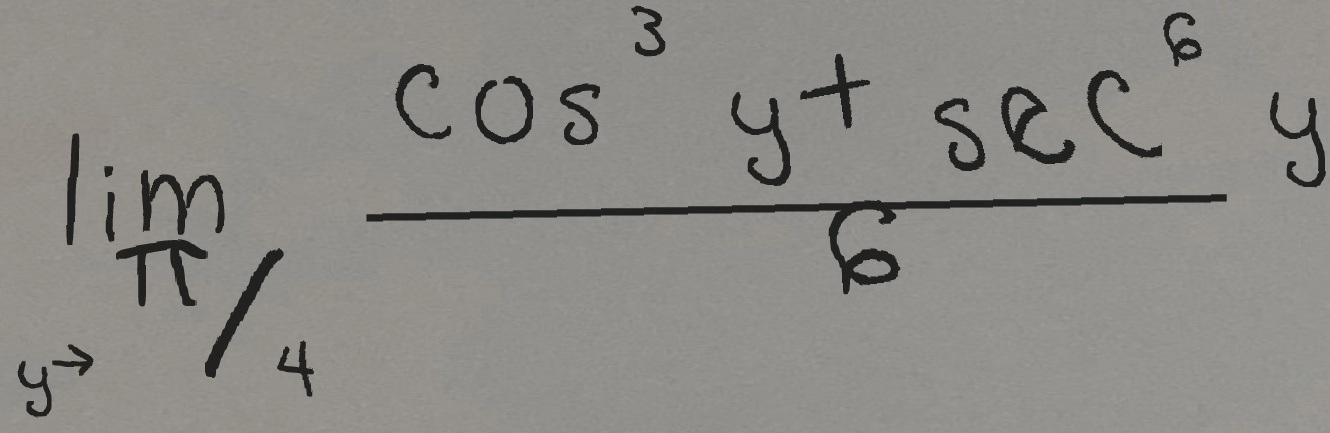 lim y→π/4 (cos³ y + sec⁶ y)/6